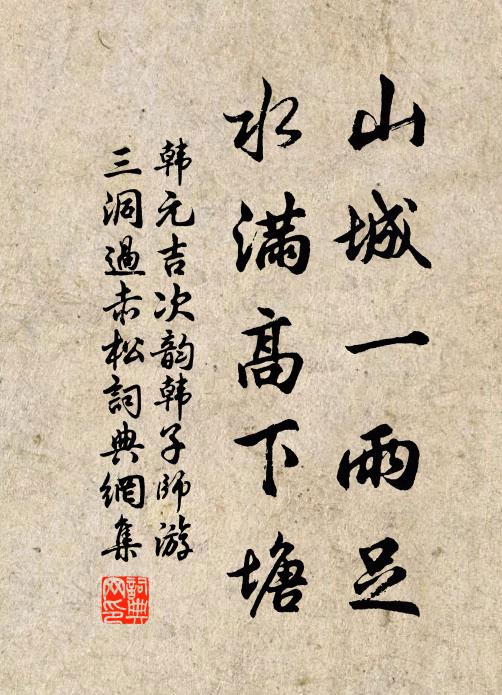 山城一雨足
水满高下塘
韩元吉次韵韩子师游
三洞過赤松詞典網集
詞典
网印